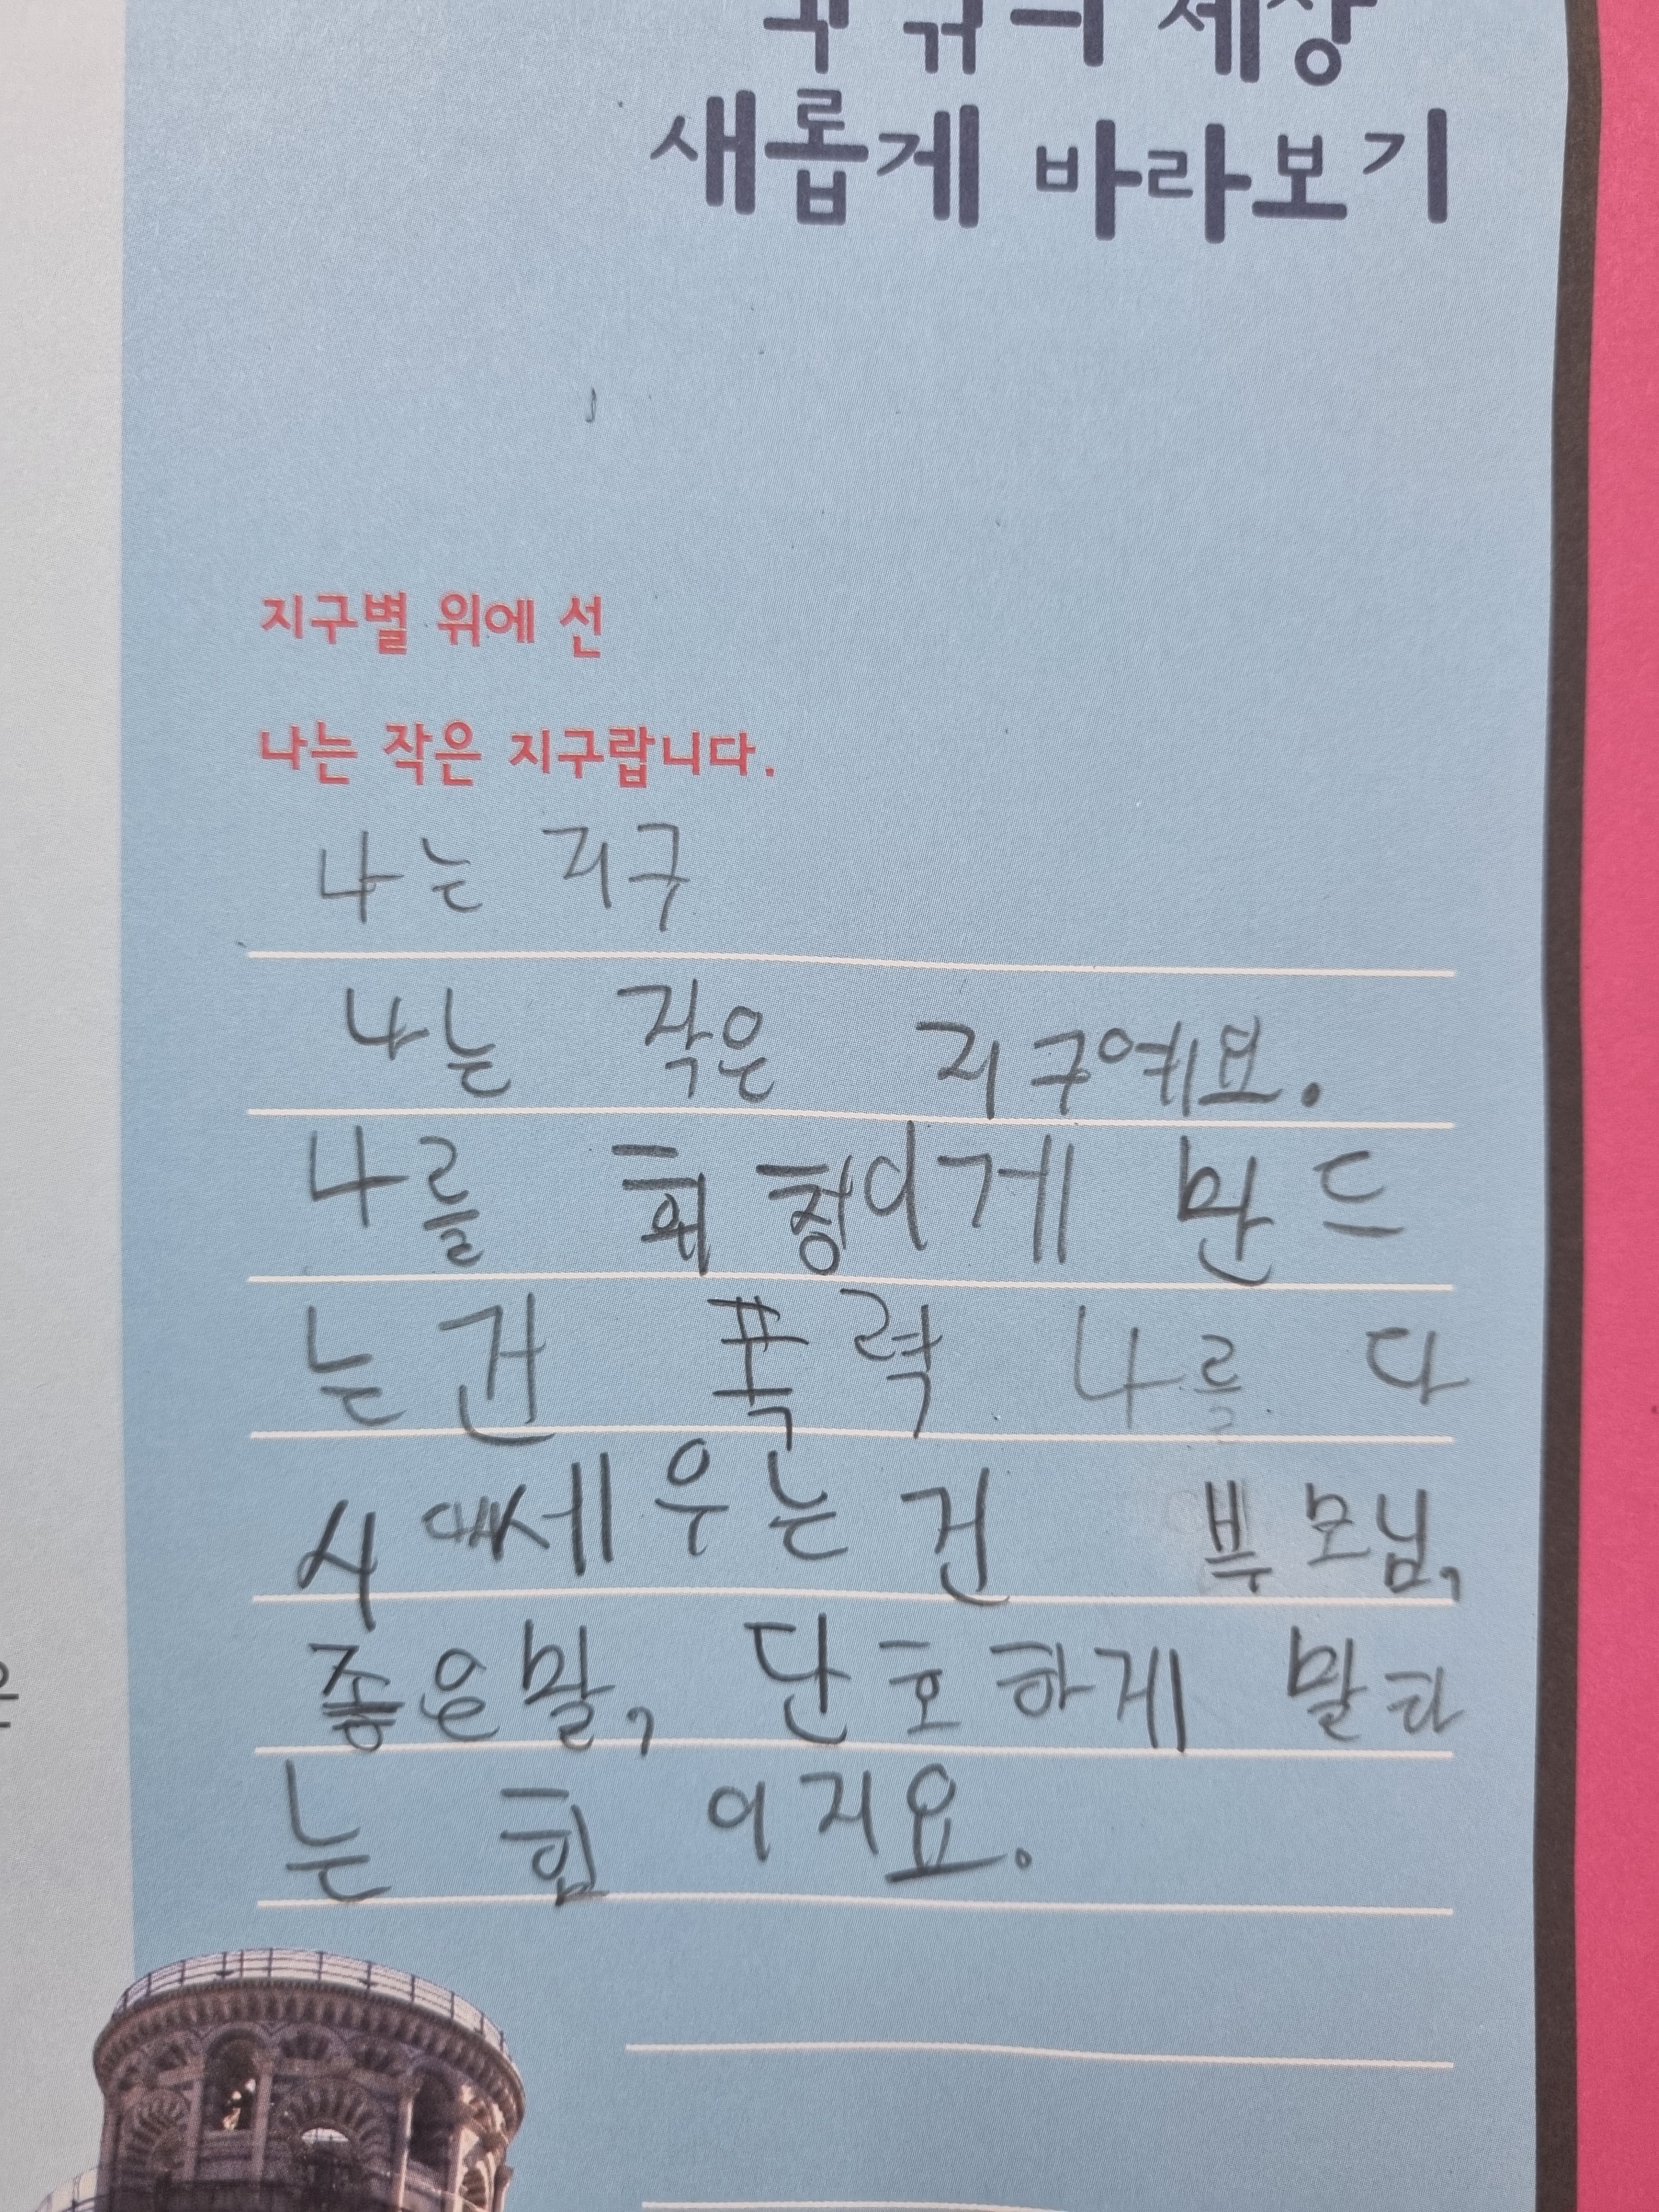 세상
새롭게 바라보기
지구별 위에 선
나는 작은 지구랍니다.
나는 지구
나는 작은 지구예요.
나를 휘청이게 만드
는건 폭력 나를 다
시 세우는 건 부모님,
좋은말, 단호하게 말하
는 힘 이지요.